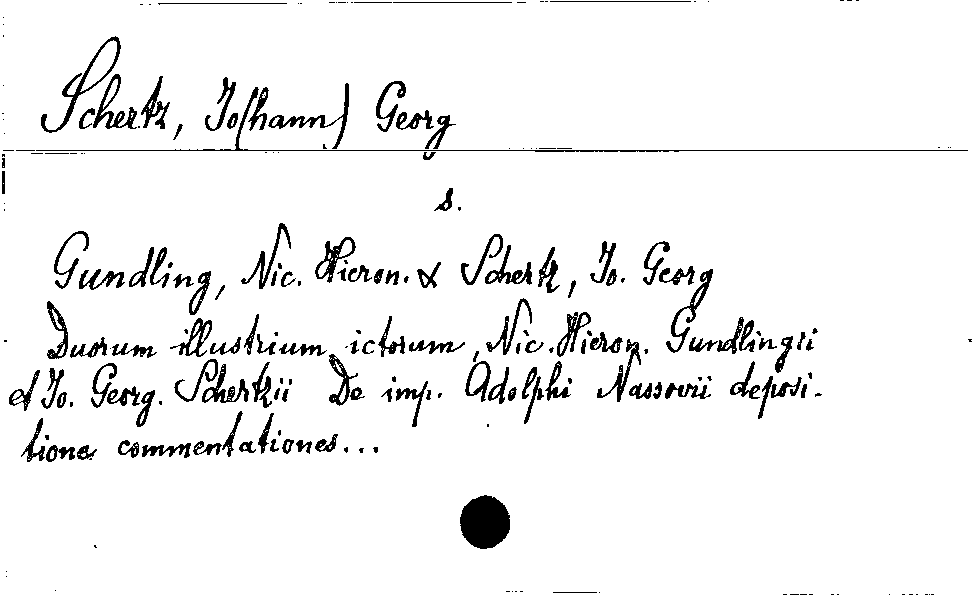 Schertz, Jo(hann) Georg
s.
Gundling, Nic. Hieron. & Schertz, Jo. Georg
Duorum illustrium ictorum, Nic. Hieron. Gundlingii
et Jo. Georg. Schertzii De imp. Adolphi Nassovii deposi-
tione commentationes...